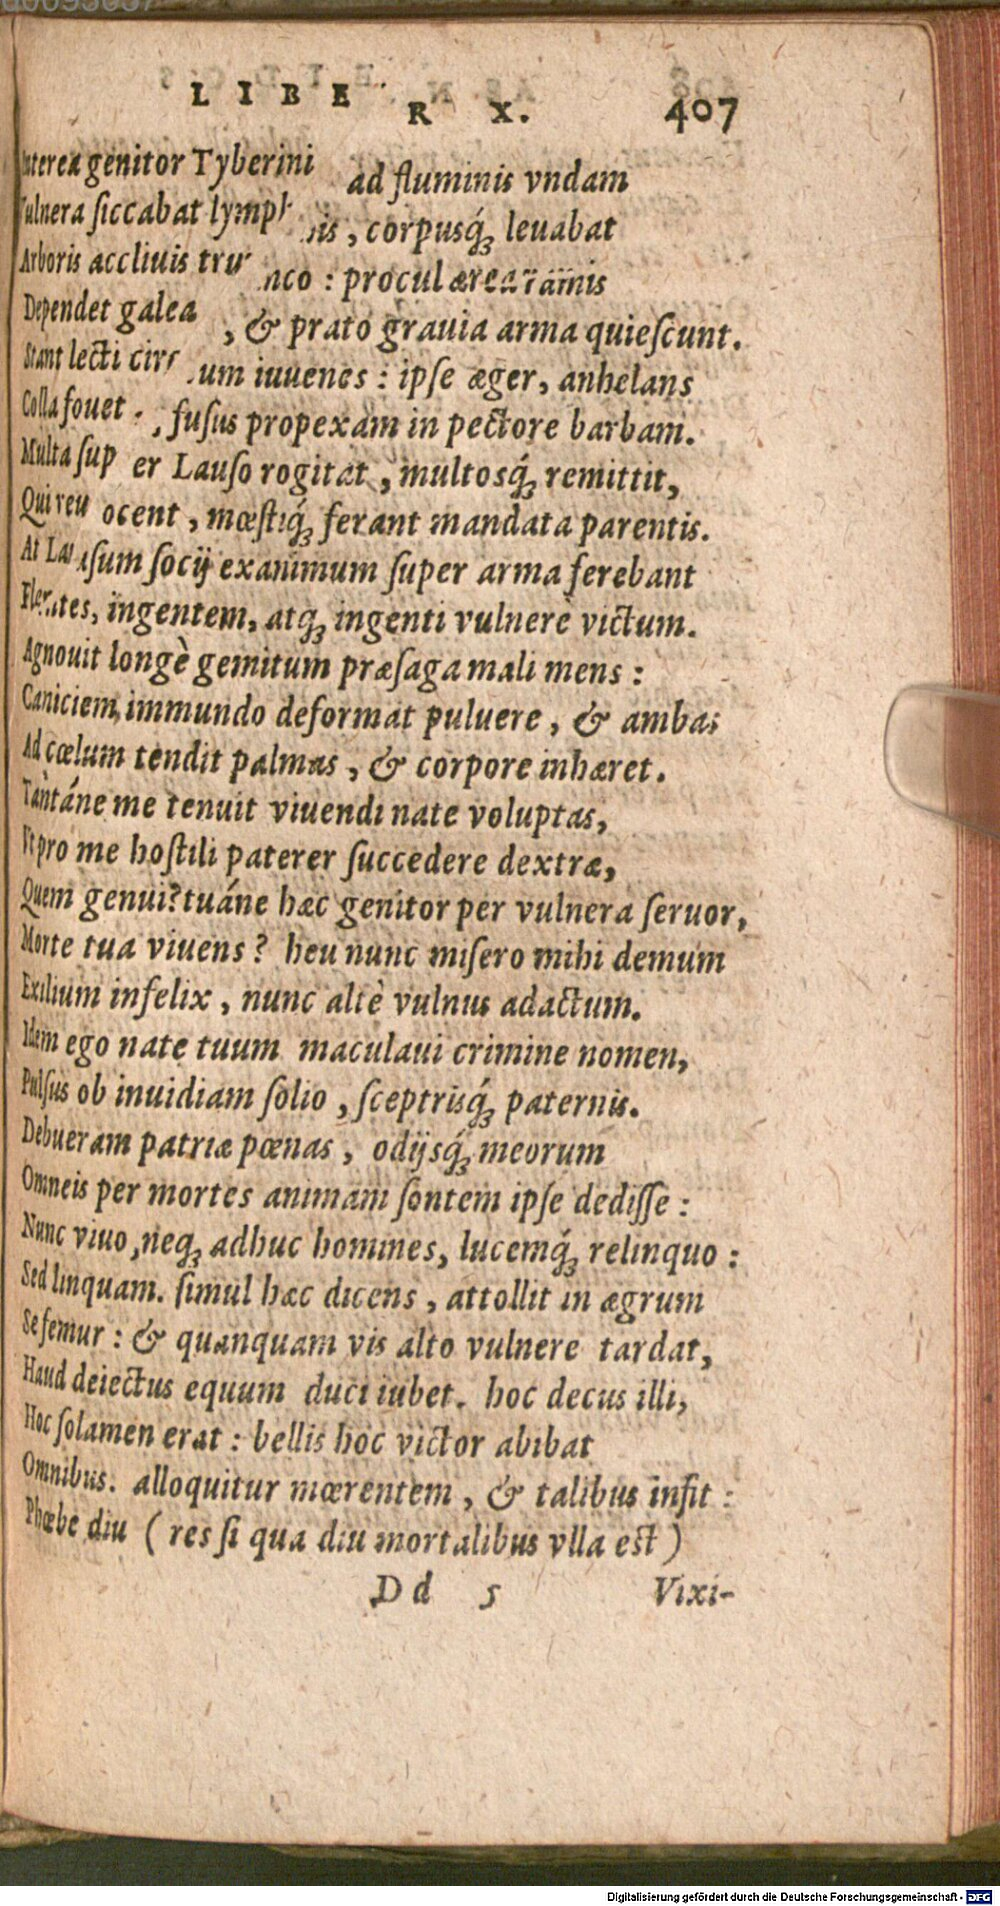 LIBER X. 407
Interea genitor Tyberini ad fluminis vndam
Vulnera ſiccabat lymphis, corpusq́; leuabat
Arboris accliuis trunco : procul ærea ramis
Dependet galea, & prato grauia arma quieſcunt.
Stant lecti circum iuuenes : ipſe æger, anhelans
Colla fouet, fuſus propexam in pectore barbam.
Multa ſuper Lauſo rogitat, multosq́; remittit,
Qui reuocent, mœſtiq́; ferant mandata parentis.
At Lauſum ſocij exanimum ſuper arma ferebant
Flentes, ingentem, atq; ingenti vulnere victum.
Agnouit longè gemitum præſaga mali mens :
Caniciem immundo deformat puluere, & ambas
Ad cœlum tendit palmas, & corpore inhæret.
Tantáne me tenuit viuendi nate voluptas,
Vt pro me hoſtili paterer ſuccedere dextræ,
Quem genui? tuáne hæc genitor per vulnera ſeruor,
Morte tua viuens? heu nunc miſero mihi demum
Exilium infelix, nunc altè vulnus adactum.
Idem ego nate tuum maculaui crimine nomen,
Pulſus ob inuidiam ſolio, ſceptrisq́; paternis.
Debueram patriæ pœnas, odijsq́; meorum
Omneis per mortes animam ſontem ipſe dediſſe :
Nunc viuo, neq; adhuc homines, lucemq́; relinquo :
Sed linquam. ſimul hæc dicens, attollit in ægrum
Se femur : & quanquam vis alto vulnere tardat,
Haud deiectus equum duci iubet. hoc decus illi,
Hoc ſolamen erat : bellis hoc victor abibat
Omnibus. alloquitur mœrentem, & talibus infit :
Phœbe diu (res ſi qua diu mortalibus vlla eſt)
Dd 5 Vixi-
Digitalisierung gefördert durch die Deutsche Forschungsgemeinschaft - DFG